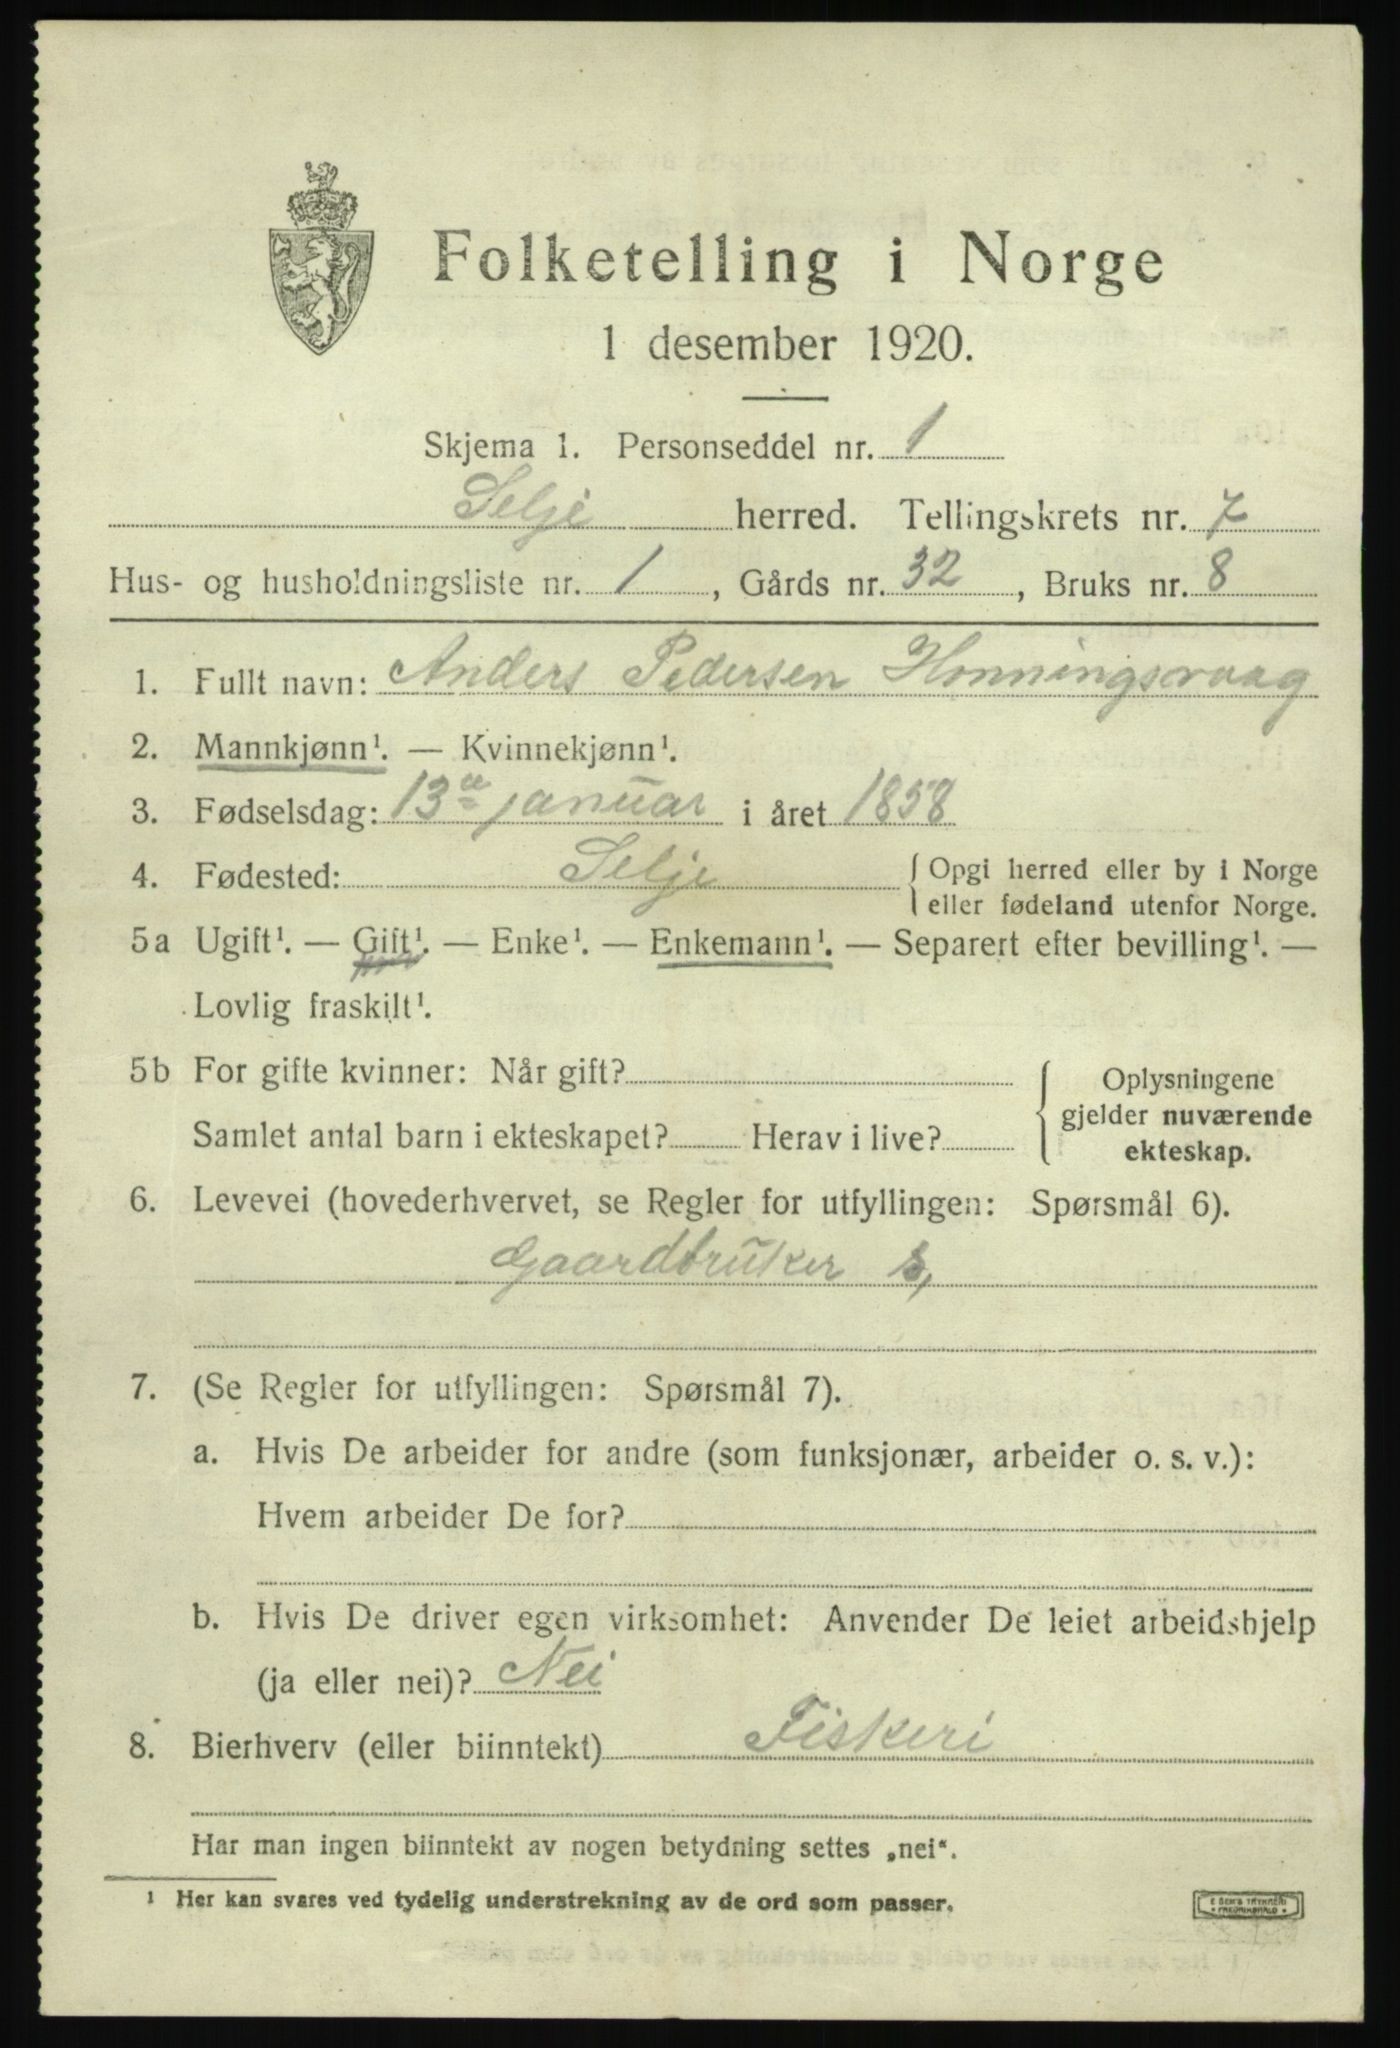 Folketelling i Norge
1 desember 1920.
Skjema 1. Personseddel nr. 1
Selje herred. Tellingskrets nr. 7
Hus- og husholdningsliste nr. 1, Gårds nr. 32, Bruks nr. 8
1. Fullt navn: Anders Pedersen Honningsvaag
2. Mannkjønn¹. — Kvinnekjønn¹.
3. Fødselsdag: 13de januar i året 1858
4. Fødested: Selje { Opgi herred eller by i Norge
eller fødeland utenfor Norge.
5a Ugift¹. — Gift¹. — Enke¹. — Enkemann¹. — Separert efter bevilling¹. —
Lovlig fraskilt¹.
5b For gifte kvinner: Når gift?
Samlet antal barn i ekteskapet? Herav i live?
{ Oplysningene
gjelder nuværende
ekteskap.
6. Levevei (hovederhvervet, se Regler for utfyllingen: Spørsmål 6).
Gaardbruker s,
7. (Se Regler for utfyllingen: Spørsmål 7).
a. Hvis De arbeider for andre (som funksjonær, arbeider o. s. v.):
Hvem arbeider De for?
b. Hvis De driver egen virksomhet: Anvender De leiet arbeidshjelp
(ja eller nei)? Nei
8. Bierhverv (eller biinntekt) Fiskeri
Har man ingen biinntekt av nogen betydning settes „nei“.
¹ Her kan svares ved tydelig understrekning av de ord som passer.